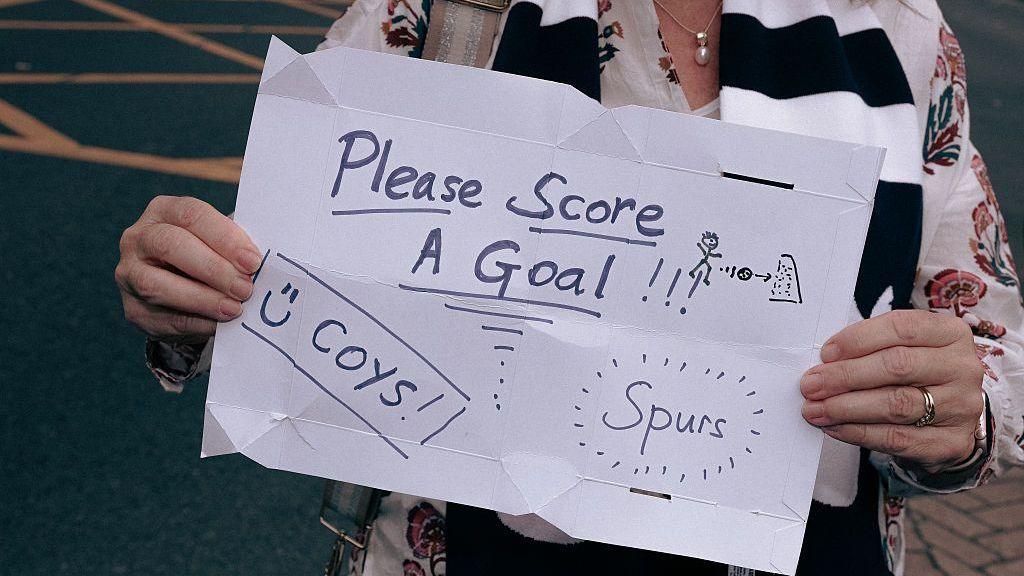 Please Score
A Goal !!!
COYS!
Spurs